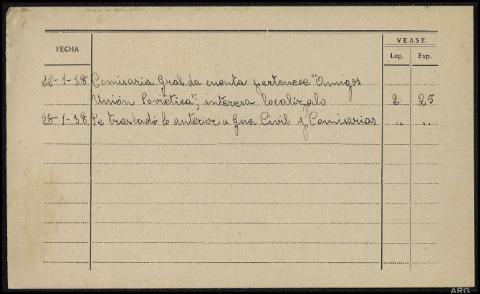 VEASE
FECHA
Leg. Exp.
22-1-38 Comisaria Gral. da cuenta pertenece "Amigos
Unión Sovietica"; interesa localizalo 2 25
28-1-38 Se trasladó lo anterior a Gua Civil y Comisarias " "
ARG